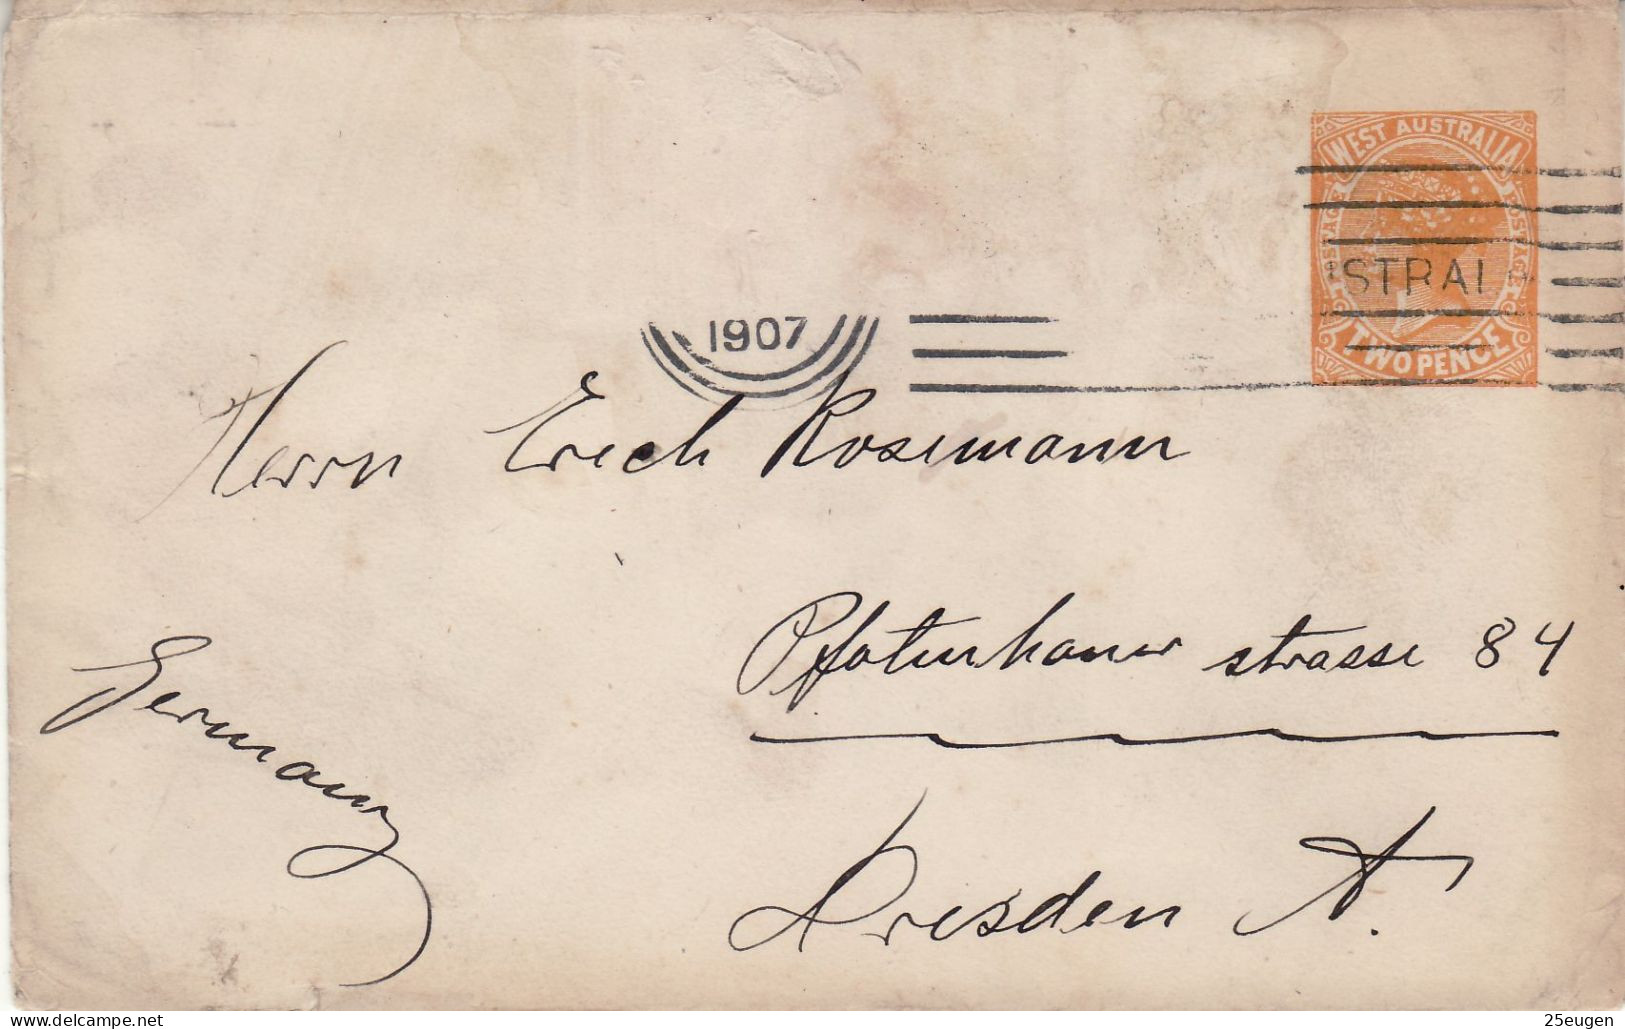 WEST AUSTRALIA
POSTAGE
POSTAGE
STRAL
TWO PENCE
1907
Herrn Erich Rosemann
Pfotenhauer strasse 84
Germany
Dresden A.
25eugen